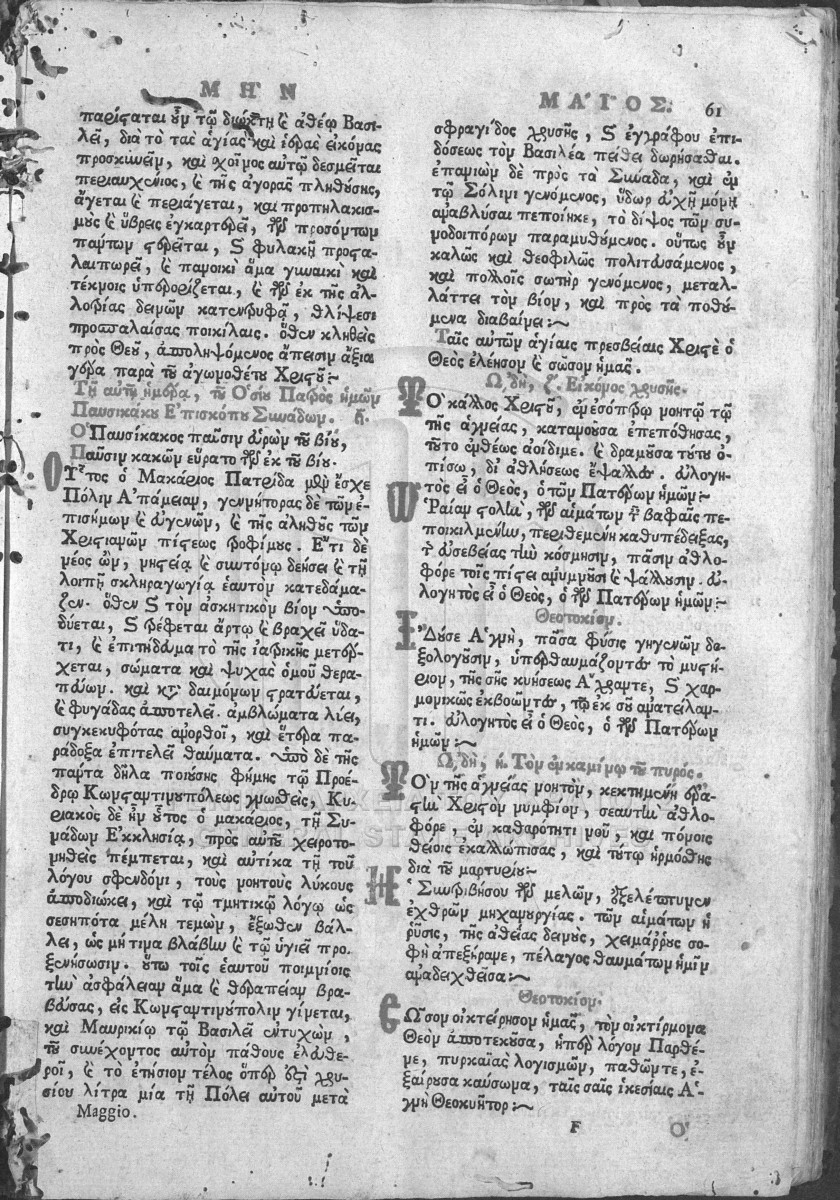 ΜΗΝ ΜΑΪΟΣ. 61
παρίσταται οὖν τῷ διώκτῃ ϗ ἀθέῳ Βασι-
λεῖ, διὰ τὸ τὰς ἁγίας καὶ ἱερὰς εἰκόνας
προσκυνεῖν, καὶ σχοῖνος αὐτῷ δεσμεῖται
περιαυχένιος, ϗ τῆς ἀγορᾶς πληθύσης,
ἄγεται ϗ περιάγεται, καὶ προπηλακισ-
μοὺς ϗ ὕβρεις ἐγκαρτερεῖ, τῶν προσόντων
πάντων στερεῖται, ϗ φυλακῇ προστα-
λαιπωρεῖ, ϗ πανοικὶ ἅμα γυναικὶ καὶ
τέκνοις ὑπερορίζεται, ϗ τῶν ἐκ τῆς ἀλ-
λοφίας δεινῶν κατεντρυφᾷ, θλίψεσι
προσπαλαίσας ποικίλαις. ὅθεν κληθεὶς
πρὸς Θεοῦ, ἀποληψόμενος ἄπεισιν ἄξια
γέρα παρὰ τοῦ ἀγωνοθέτου Χριστοῦ:~
Τῇ αὐτῇ ἡμέρᾳ, τοῦ Ὁσίου Πατρὸς ἡμῶν
Παυσικάκου Ἐπισκόπου Συνάδων.
Ὁ Παυσίκακος παῦσιν εὑρὼν τοῦ βίου,
Παῦσιν κακῶν εὕρατο τῶν ἐκ τοῦ βίου.
Οὗτος ὁ Μακάριος Πατρίδα μὲν ἔσχε
Πόλιν Ἀπάμειαν, γεννήτορας δὲ τῶν ἐ-
πισήμων ϗ εὐγενῶν, ϗ τῆς ἀληθοῦς τῶν
Χριστιανῶν πίστεως τροφίμους. Ἔτι δὲ
νέος ὢν, νηστείᾳ ϗ συντόνῳ δεήσει ϗ τῇ
λοιπῇ σκληραγωγίᾳ ἑαυτὸν κατεδάμα-
ζεν. ὅθεν ϗ τὸν ἀσκητικὸν βίον ὑπο-
δύεται, ϗ τρέφεται ἄρτῳ ϗ βραχεῖ ὕδα-
τι, ϗ ἐπιτήδευμα τὸ τῆς ἰατρικῆς μετέρ-
χεται, σώματα καὶ ψυχὰς ὁμοῦ θερα-
πεύων. καὶ κτ̀ δαιμόνων στρατεύεται,
ϗ φυγάδας ἀποτελεῖ. ἀμβλώματα λύει,
συγκεκυφότας ἀνορθοῖ, καὶ ἕτερα πα-
ράδοξα ἐπιτελεῖ θαύματα. ὑπὸ δὲ τῆς
πάντα δῆλα ποιούσης φήμης τῷ Προέ-
δρῳ Κωνσταντινουπόλεως γνωσθεὶς, Κυ-
ριακὸς δὲ ἦν οὗτος ὁ μακάριος, τῇ Συ-
νάδων Ἐκκλησίᾳ, πρὸς αὐτοῦ χειροτο-
νηθεὶς πέμπεται, καὶ αὐτίκα τῇ τοῦ
λόγου σφενδόνῃ, τοὺς νοητοὺς λύκους
ἀποδιώκει, καὶ τῷ τμητικῷ λόγῳ ὡς
σεσηπότα μέλη τεμὼν, ἔξωθεν βάλ-
λει, ὡς μή τινα βλάβην ϗ τῷ ὑγιεῖ προ-
ξενήσωσιν. οὕτω τοῖς ἑαυτοῦ ποιμνίοις
τὴν ἀσφάλειαν ἅμα ϗ θεραπείαν βρα-
βεύσας, εἰς Κωνσταντινούπολιν γίνεται,
καὶ Μαυρικίῳ τῷ Βασιλεῖ ἐντυχὼν,
τοῦ συνέχοντος αὐτὸν πάθους ἐλευθε-
ροῖ, ϗ τὸ ἐτήσιον τέλος ὅπερ ἐστὶ χρυ-
σίου λίτρα μία τῇ Πόλει αὐτοῦ μετὰ
Maggio.
σφραγίδος χρυσῆς, ϗ ἐγγράφου ἐπι-
δόσεως τὸν Βασιλέα πείθει δωρήσασθαι.
ἐπανιὼν δὲ πρὸς τὰ Σύναδα, καὶ ἐν
τῷ Σόλωνι γενόμενος, ὕδωρ εὐχῇ μόνῃ
ἀναβλύσαι πεποίηκε, τὸ δίψος τῶν συ-
νοδοιπόρων παραμυθούμενος. οὕτως οὖν
καλῶς καὶ θεοφιλῶς πολιτευσάμενος,
καὶ πολλοῖς σωτὴρ γενόμενος, μεταλ-
λάττει τὸν βίον, καὶ πρὸς τὰ ποθού-
μενα διαβαίνει:~
Ταῖς αὐτῶν ἁγίαις πρεσβείαις Χριστὲ ὁ
Θεὸς ἐλέησον ϗ σῶσον ἡμᾶς.
ᾨδὴ, ζ. Εἰκόνος χρυσῆς.
Τὸ κάλλος Χριστοῦ, ἐν ἐσόπτρῳ νοητῷ τῷ
τῆς ἁγνείας, κατανοοῦσα ἐπεπόθησας,
τοῦτο ἐνθέως ἀοίδιμε. ϗ δραμοῦσα τούτου ὀ-
πίσω, δι' ἀθλήσεως ἔψαλλες. εὐλογη-
τὸς εἶ ὁ Θεὸς, ὁ τῶν Πατέρων ἡμῶν:~
Ὡραίαν στολὴν, τῶν αἱμάτων τ̃ βαφαῖς πε-
ποικιλμένην, περιθεμένη καθυπέδειξας,
τ̃ εὐσεβείας τὴν κόσμησιν, πᾶσιν ἀθλο-
φόρε τοῖς πίστει ἀνυμνοῦσι ϗ ψάλλουσιν. εὐ-
λογητὸς εἶ ὁ Θεὸς, ὁ τῶν Πατέρων ἡμῶν:~
Θεοτοκίον.
Ἰδοῦσε Ἁγνὴ, πᾶσα φύσις γηγενῶν δο-
ξολογοῦσιν, ὑπερθαυμάζοντες τὸ μυστή-
ριον, τῆς σῆς κυήσεως Ἄχραντε, ϗ χαρ-
μονικῶς ἐκβοῶντες, τῷ ἐκ σοῦ ἀνατείλαν-
τι. εὐλογητὸς εἶ ὁ Θεὸς, ὁ τῶν Πατέρων
ἡμῶν:~
ᾨδὴ, η. Τὸν ἐν καμίνῳ τοῦ πυρός.
Τὸν τῆς ἁγνείας νοητὸν, κεκτημένη ἐρα-
στὴν Χριστὸν νυμφίον, σεαυτὴν ἀθλο-
φόρε, ἐν καθαρότητι νοῦ, καὶ πόνοις
θείοις ἐκαλλώπισας, καὶ τούτῳ ἡρμόσθης
διὰ τοῦ μαρτυρίου:~
Ἡ Συντριβή σου τῶν μελῶν, ἐξελέπτυνεν
ἐχθρῶν μηχανουργίας. τῶν αἱμάτων ἡ
ῥύσις, τῆς ἀθεΐας δεινοὺς, χειμάῤῥους σο-
φὴ ἀπεξήρανε, πέλαγος θαυμάτων ἡμῖν
ἀναδειχθεῖσα:~
Θεοτοκίον.
Σῶσον οἰκτείρησον ἡμᾶς, τὸν οἰκτίρμονα
Θεὸν ἀποτεκοῦσα, ὑπὲρ λόγον Παρθέ-
νε, πυρκαϊᾶς λογισμῶν, παθῶν τε, ἐ-
ξαίρουσα καύσωνα, ταῖς σαῖς ἱκεσίαις Ἁ-
γνὴ Θεοκυῆτορ:~
F Ὁ